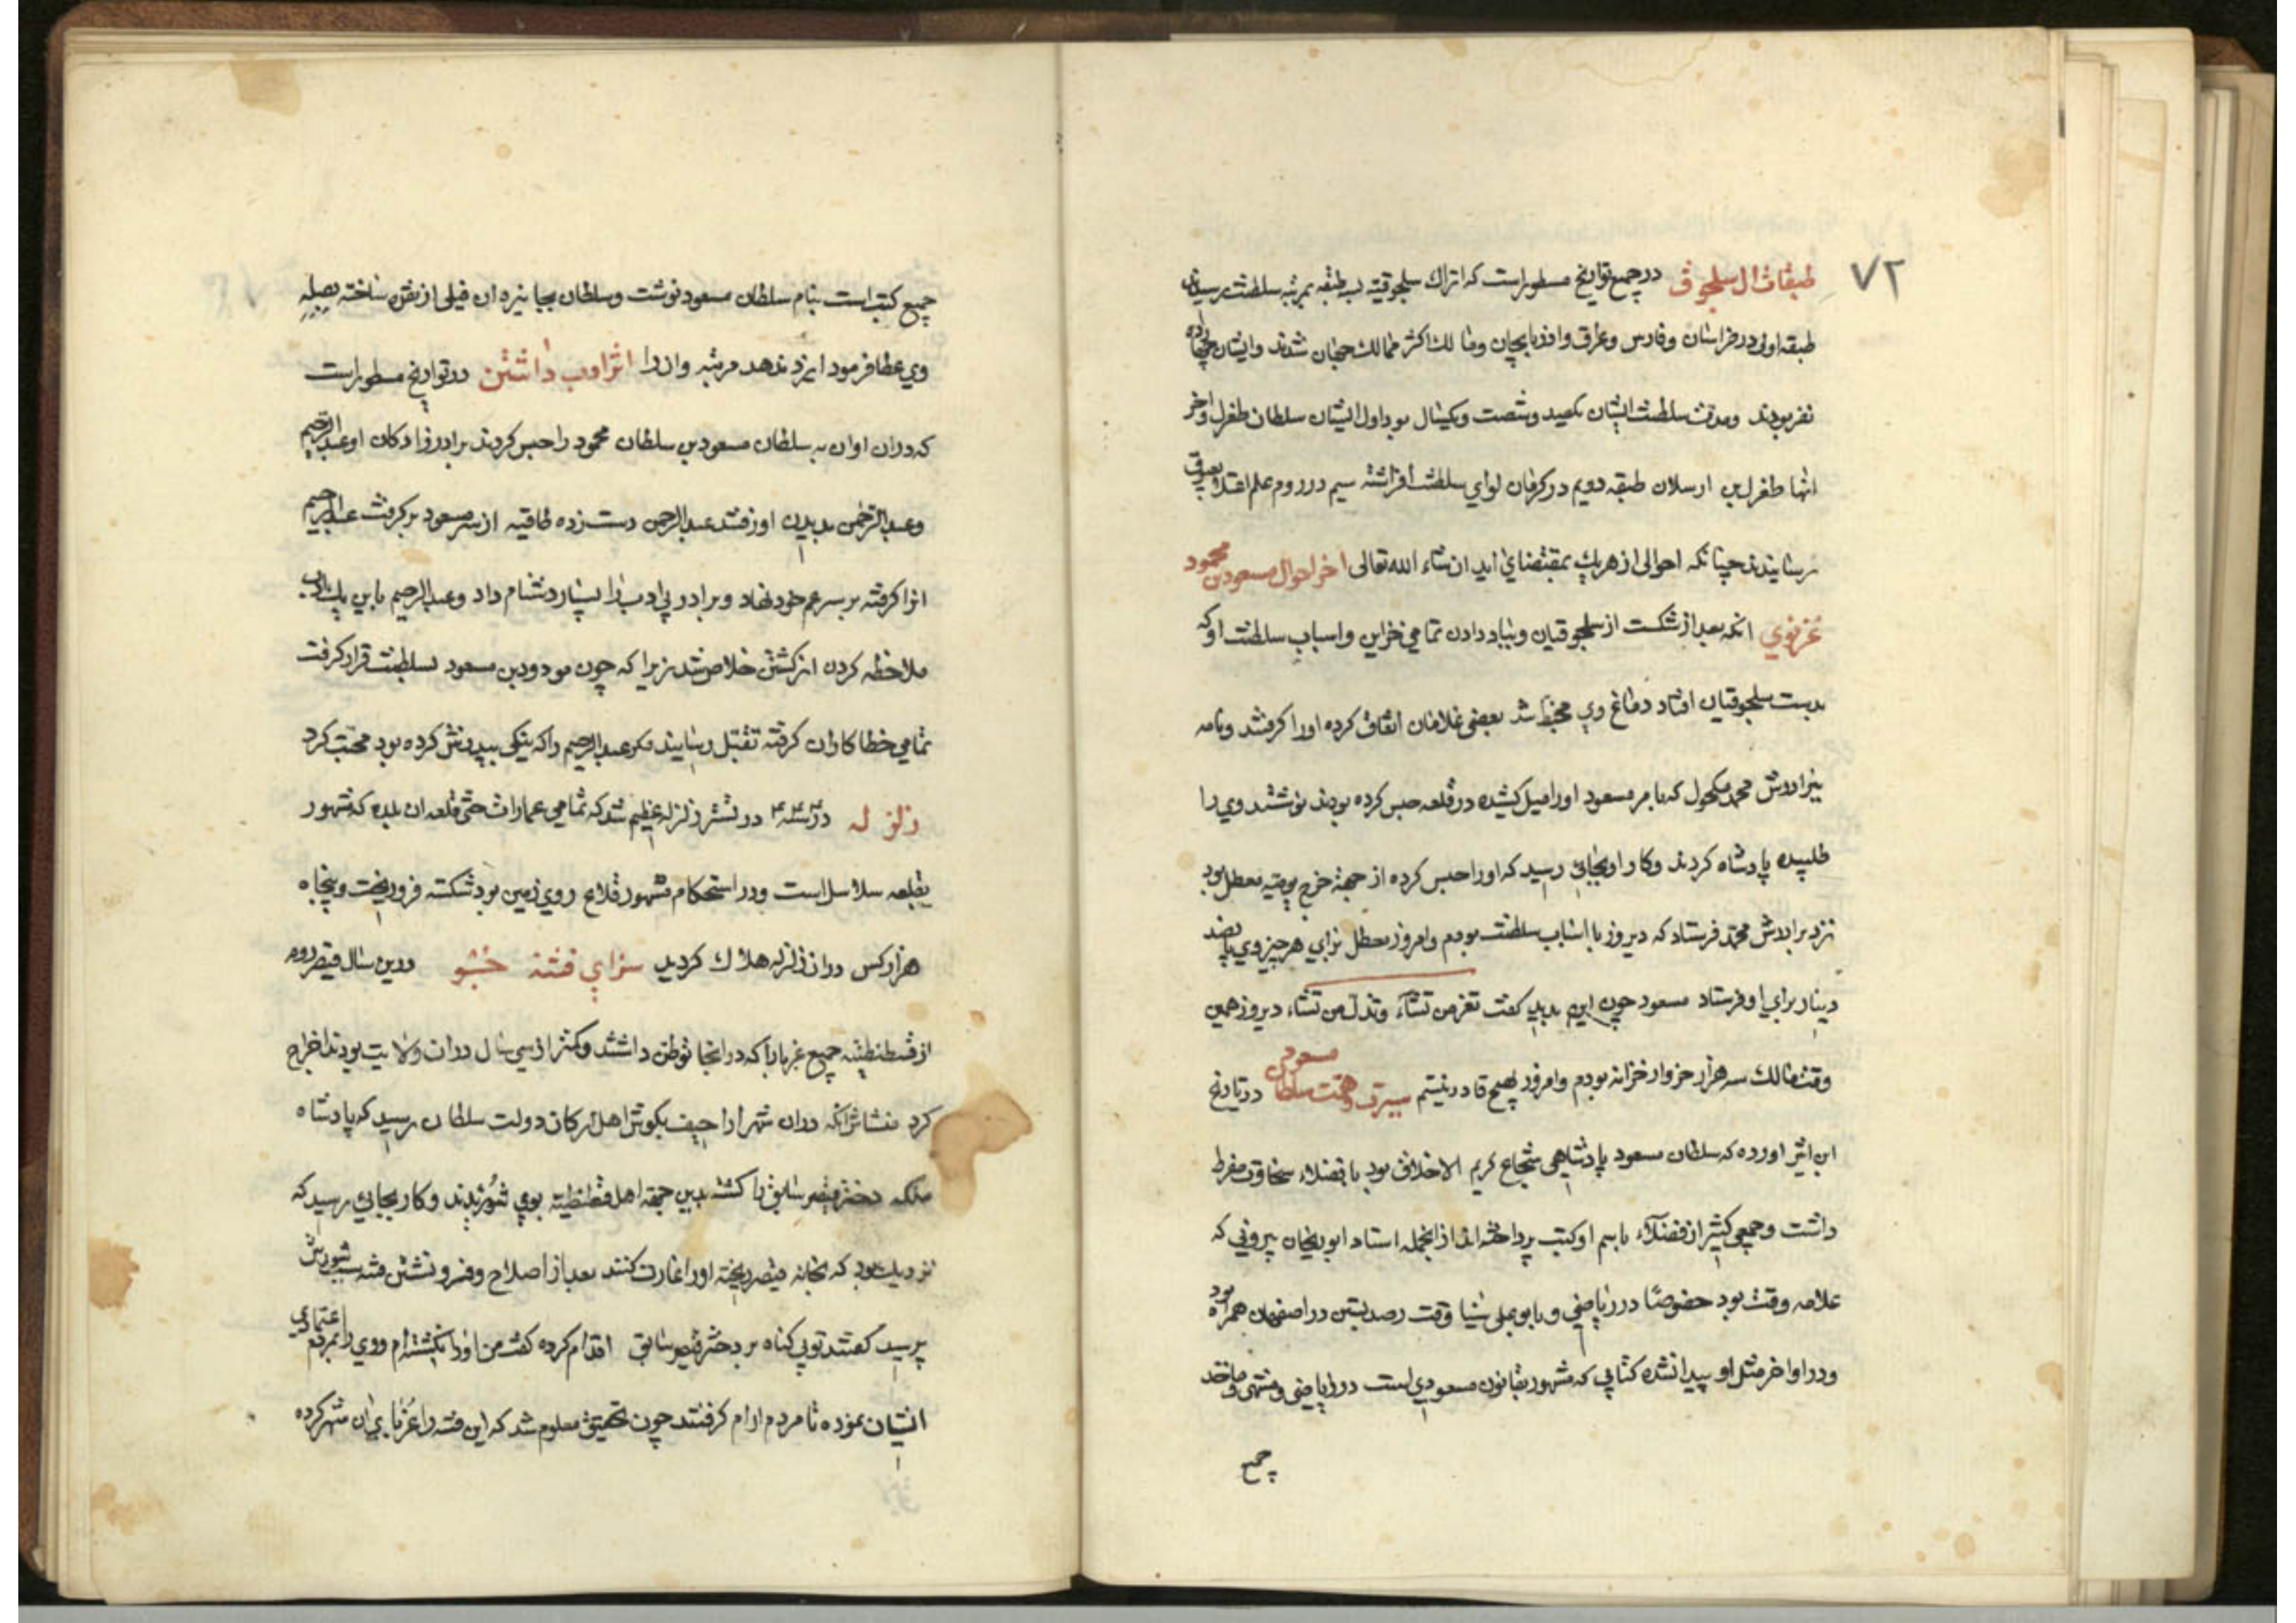 ۷۲
طبقات ال سلجوق در جمیع تواریخ مسطور است که اتراک سلجوقیه سه طبقه بمرتبه سلطنت رسیدند
طبقه اولی در خراسان وفارس وعراق واذربایجان ومالک اکثر ممالک جهان شدند وایشان چهارده
نفر بودند ومدت سلطنت ایشان یکصد وشصت ویکسال بود اول ایشان سلطان طغرل واخر
انها طغرل بن ارسلان طبقه دویم در کرمان لوای سلطنت افراشته سیم در روم علم اعتلا بعیوق
رسانیدند چنانکه احوالی از هریک بمقتضای اید ان شاء الله تعالی اخر احوال مسعود بن محمود
غزنوي انکه بعد از شکست از سلجوقیان وبباد دادن تمامی خزاین واسباب سلطنت او که
بدست سلجوقیان افتاد دماغ وی مخبط شد بعضی غلامان اتفاق کرده اورا کرفتند ونامه
ببرادرش محمد مکحول که بامر مسعود اورا میل کشیده در قلعه حبس کرده بودند نوشتند وی را
طلبیده پادشاه کردند وکار او بجایی رسید که اورا حبس کرده از جهة خرج یومیه معطل بود
نزد برادرش محمد فرستاد که دیروز با اسباب سلطنت بودم وامروز معطل برای هر چیز وی پانصد
دینار برای او فرستاد مسعود چون این بدید کفت تعز من تشآء وتذل من تشاء دیروز همین
وقت مالک سه هزار خروار خزانه بودم وامروز بهیچ قادر نیستم سیرت وهمت سلطان مسعود در تاریخ
ابن اثیر اورده که سلطان مسعود پادشاهی شجاع کریم الاخلاق بود با فضلاء سخاوت مفرط
داشت وجمعی کثیر از فضلآء باسم او کتب پرداخته اند از انجمله استاد ابو ریحان بیرونی که
علامه وقت بود خصوصًا در ریاضی وبا بوعلی سینا وقت رصد بستن در اصفهان همراه بود
ودر اواخر مثل او پیدا نشده کتابی که مشهور بقانون مسعودی است در ریاضی ومنتهی وماخذ
جمیع
جمیع کتب است بنام سلطان مسعود نوشت وسلطان بجایزه ان فیلی از نقره ساخته بصله
وي عطا فرمود ایزد ندهد مرتبه وازرا اثر ادب داشتن در تواریخ مسطور است
که دران اوان به سلطان مسعود بن سلطان محمود را حبس کردند برادر زادکان او عبدالرحیم
وعبدالرحمن بدیدن او رفتند عبدالرحمن دست زده طاقیه از سر مسعود برکرفت عبدالرحیم
انرا کرفته بر سر عم خود نهاد وبرادر بی ادب را بسیار دشنام داد وعبدالرحیم باین یک ادب
ملاحظه کردن از کشتن خلاص شد زیرا که چون مودود بن مسعود بسلطنت قرار کرفت
تمامی خطا کاران کرفته تقبل رسانید مکر عبدالرحیم را که نیکی بپدرش کرده بود محبت کرد
زلزله در سنه ۴۳۴ در تبشر زلزله عظیم شد که تمامی عمارات حتی قلعه ان بلده که مشهور
بقلعه سلاسل است ودر استحکام مشهور قلاع روی زمین بود شکسته فرو ریخت وپنجاه
هزار کس دران زلزله هلاک کردید سزاي فتنه جُو درین سال قیصر روم
از قسطنطنیه جمیع غربا را که در انجا توطن داشتند وکمتر از سی سال دران ولایت بودند اخراج
کرد منشاش انکه دران شهر اراجیف بکوش اهل ارکان دولت سلطان رسید که پادشاه
ملکه دختر قیصر سابق را کشته بدین جهة اهل قسطنطنیه بوی شوریدند وکار بجایی رسید که
نزدیک بود که بخانه قیصر ریخته اورا غارت کنند بعد از اصلاح وفرو نشستن فتنه سبب شورش
پرسید کفتند توبی کناه بر دختر قیصر سابق اقدام کرده کفت من اورا نکشته ام ووی را بمردم اعتمادی
ایشان نموده تا مردم ارام کرفتند چون تحقیق معلوم شد که این فتنه را غربای ان شهر کرده